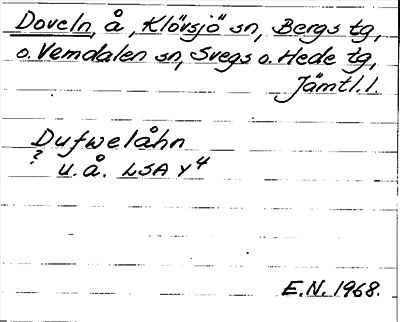 Doveln, å, Klövsjö sn, Bergs tg,
o. Vemdalen sn, Svegs o. Hede tg,
Jämtl. l.
Dufwelåhn
? u. å. LSA Y4
E.N. 1968.